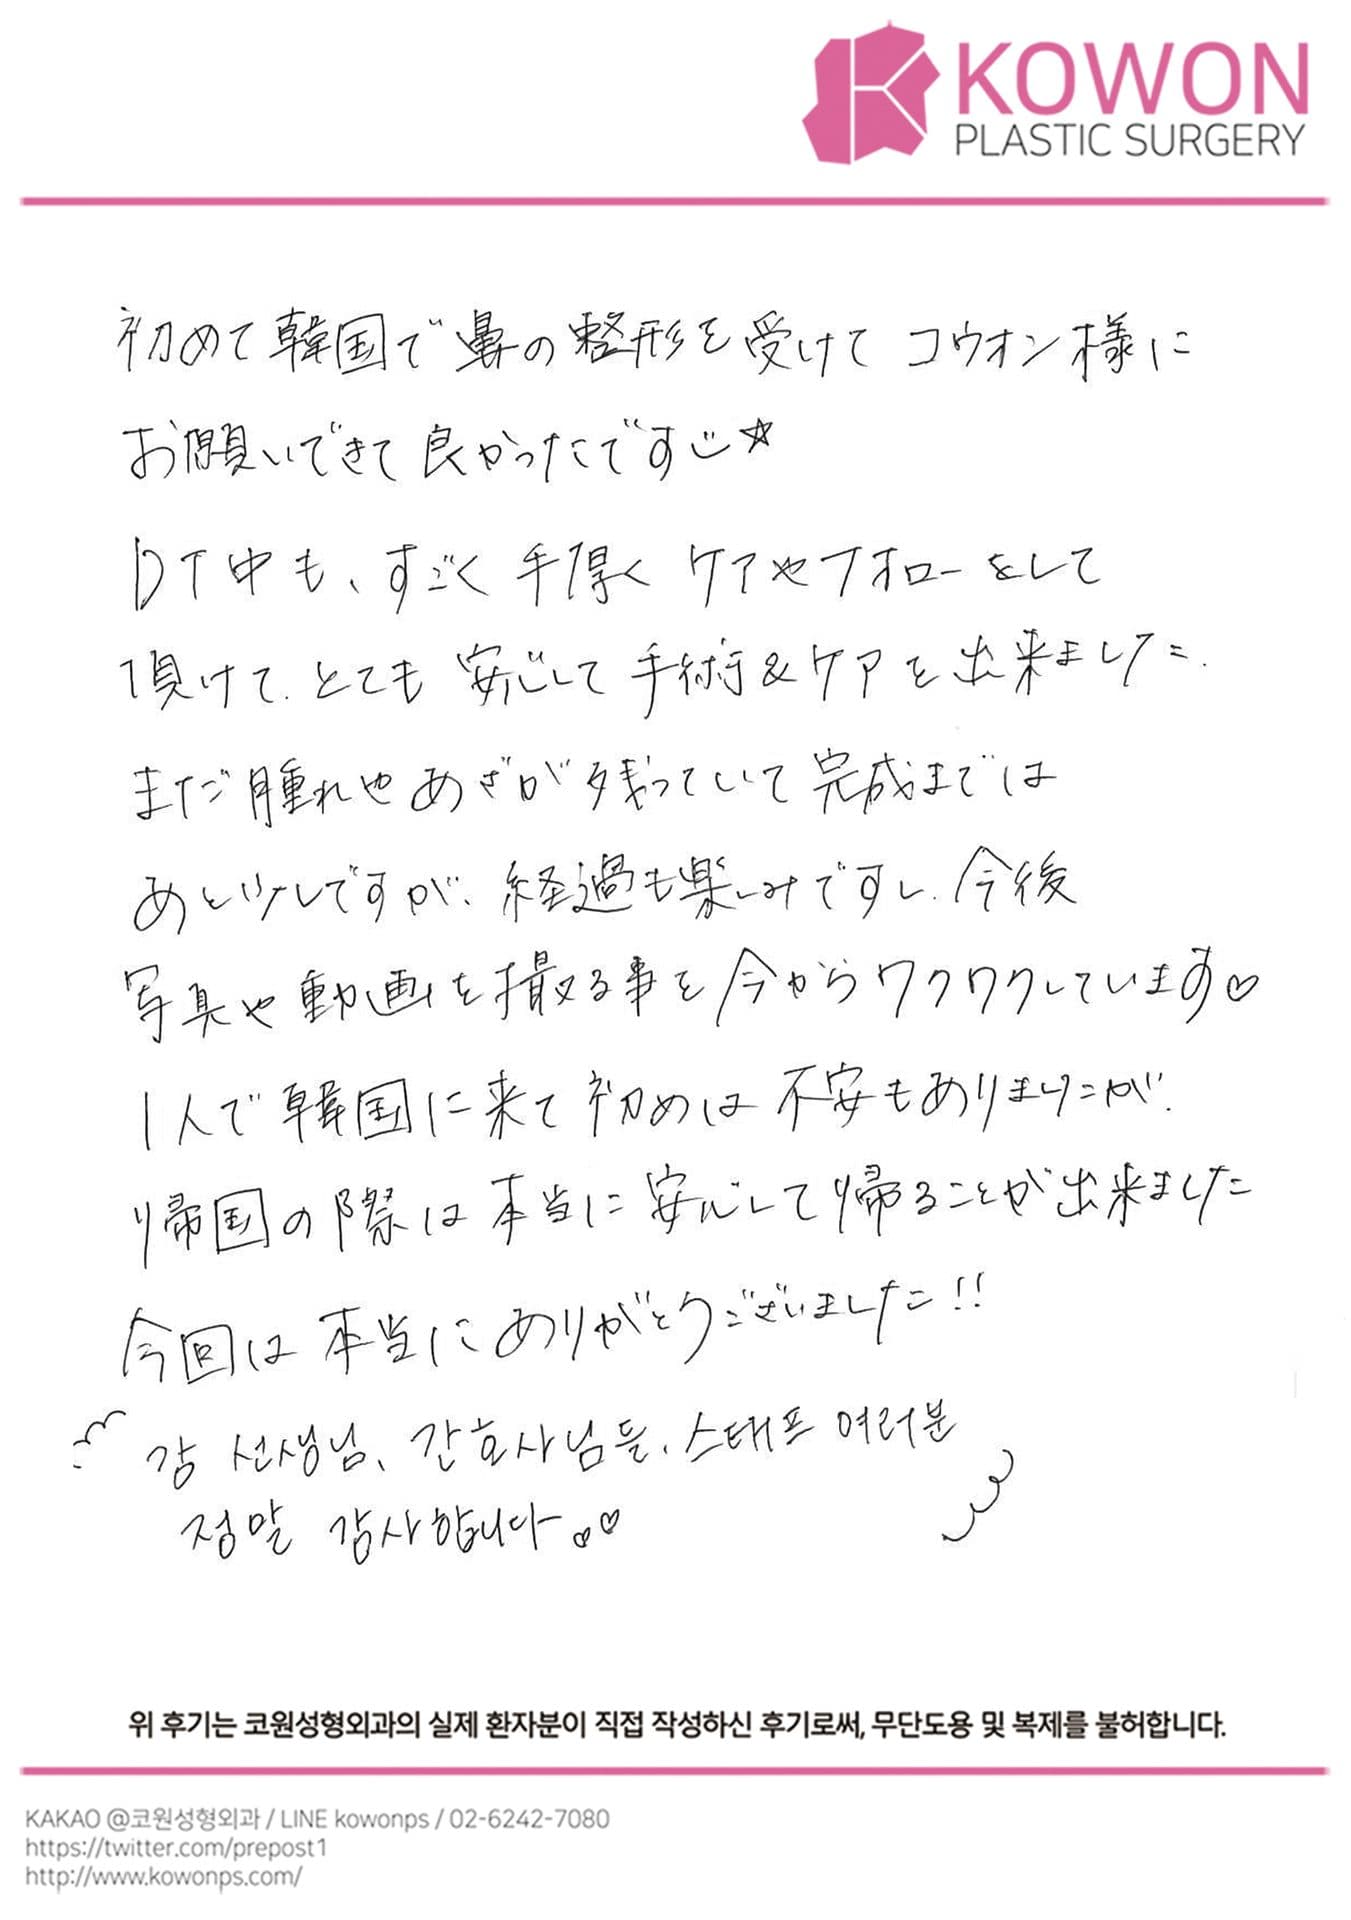 KOWON
PLASTIC SURGERY
初めて韓国で鼻の整形を受けて コウオン様に
お願いできて良かったです☆
DT中も、すごく手厚くケアやフォローをして
頂けて、とても安心して手術&ケアを出来ました.
まだ腫れやあざが残っていて完成までは
あと少しですが、経過も楽しみですし、今後
写真や動画を撮る事を今からワクワクしています♡
1人で韓国に来て初めは不安もありましたが、
帰国の際は本当に安心して帰ることが出来ました
今回は本当にありがとうございました!!
강 선생님、간호사님들、스태프 여러분
정말 감사합니다 ♡♡
위 후기는 코원성형외과의 실제 환자분이 직접 작성하신 후기로써, 무단도용 및 복제를 불허합니다.
KAKAO @코원성형외과 / LINE kowonps / 02-6242-7080
https://twitter.com/prepost1
http://www.kowonps.com/